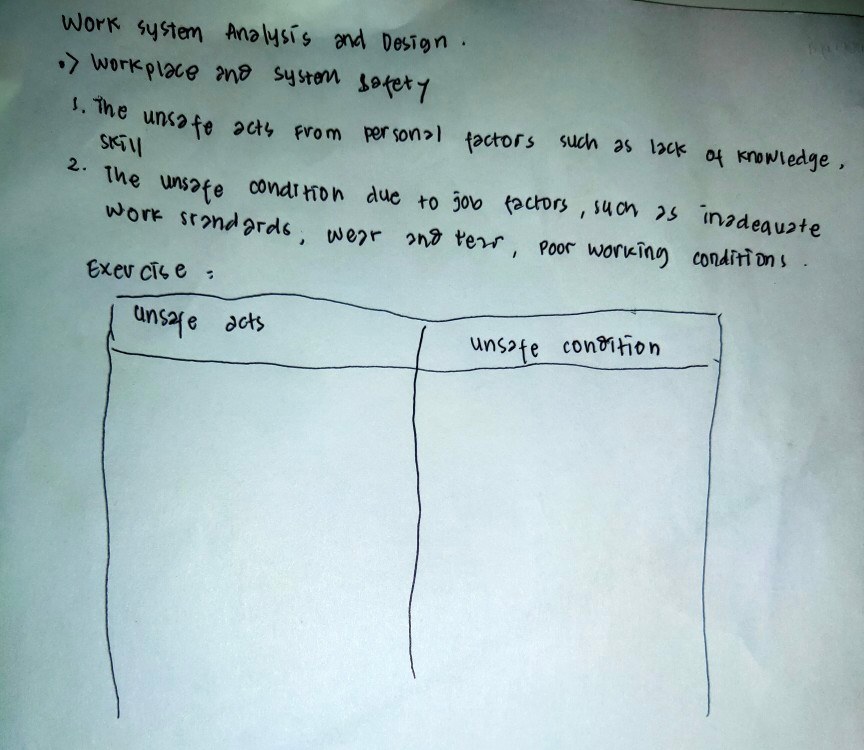 Work system Analysis and Design.
•> Workplace and system safety
1. The unsafe acts From personal factors such as lack of knowledge,
skill
2. The unsafe condition due to job factors, such as inadequate
work standards, wear and tear, poor working conditions.
Exercise :
unsafe acts
unsafe condition